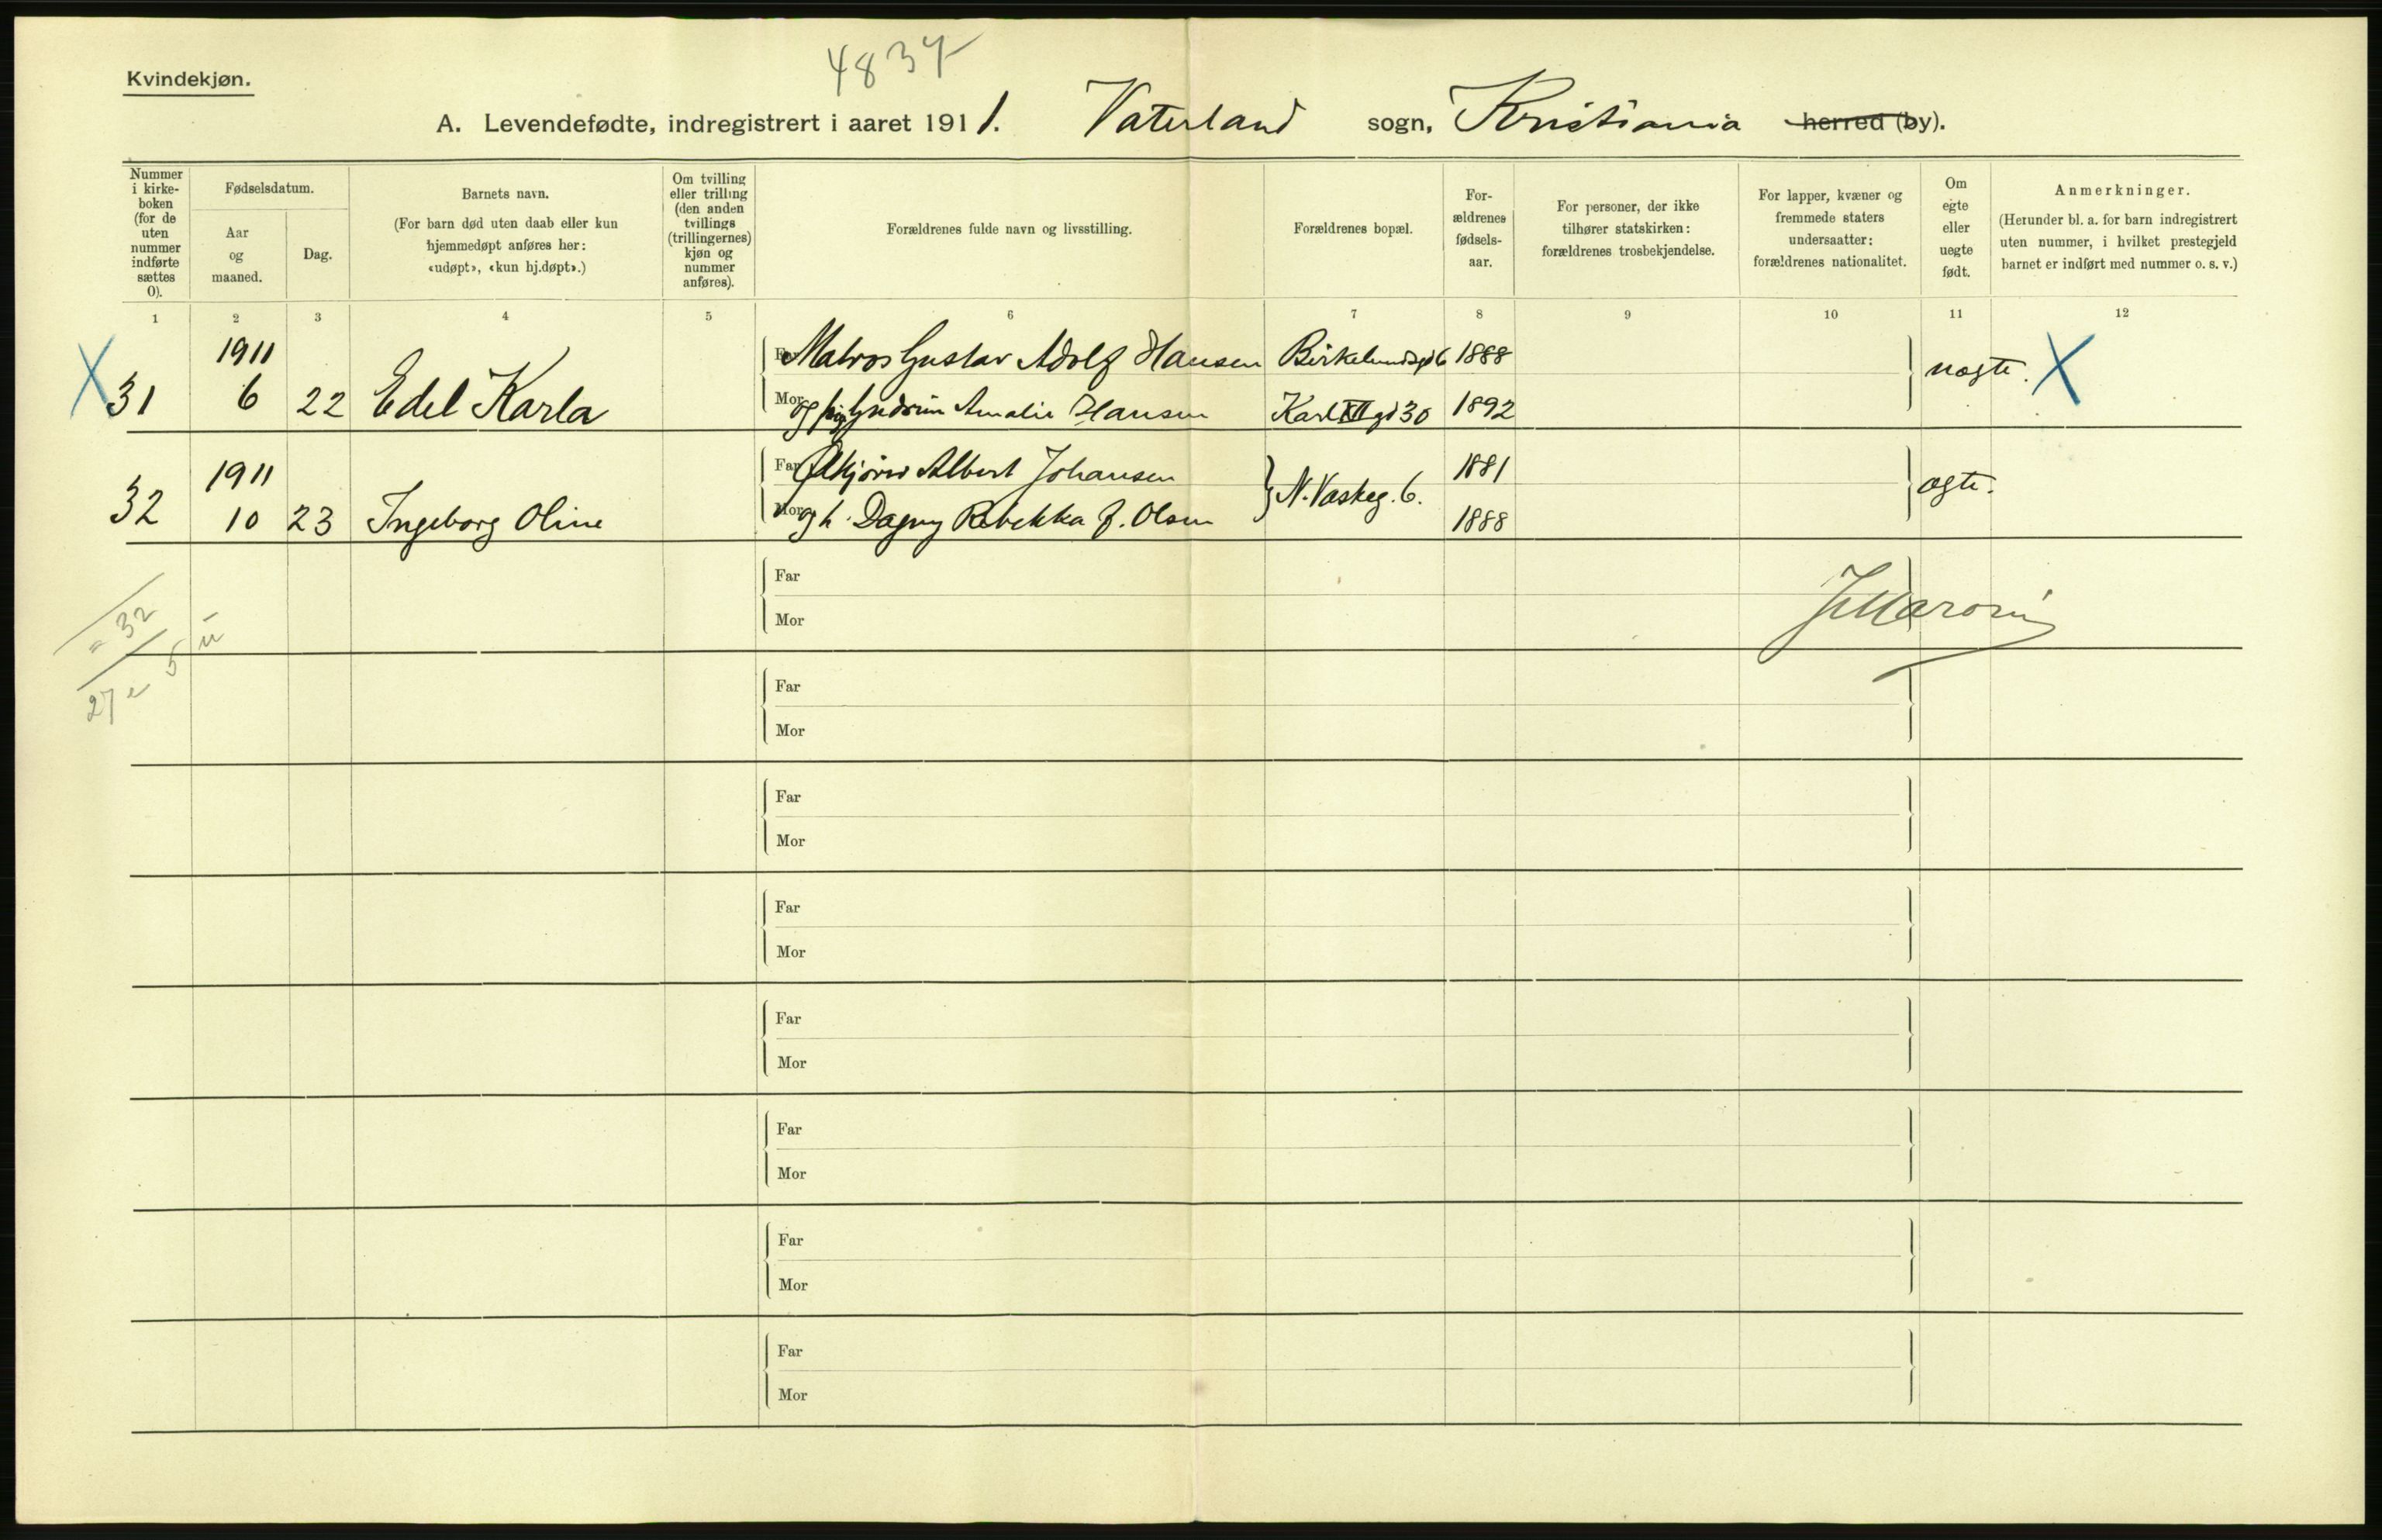 4837
Kvindekjøn.
A. Levendefødte, indregistrert i aaret 1911. Vaterland sogn, Kristiania herred (by).
Nummer i kirke-boken (for de uten nummer indførte sættes 0).
Fødselsdatum.
Aar og maaned.
Dag.
Barnets navn.
(For barn død uten daab eller kun hjemmedøpt anføres her: «udøpt», «kun hj.døpt».)
Om tvilling eller trilling (den anden tvillings (trillingernes) kjøn og nummer anføres).
Forældrenes fulde navn og livsstilling.
Forældrenes bopæl.
For-ældrenes fødsels-aar.
For personer, der ikke tilhører statskirken: forældrenes trosbekjendelse.
For lapper, kvæner og fremmede staters undersaatter: forældrenes nationalitet.
Om egte eller uegte født.
Anmerkninger.
(Herunder bl. a. for barn indregistrert uten nummer, i hvilket prestegjeld barnet er indført med nummer o. s. v.)
1 2 3 4 5 6 7 8 9 10 11 12
1911 Matros Gustav Adolf Hansen Birkelundsgd 6 1888
X 31 6 22 Edel Karla Mor og pig Gudrun Amalie Hansen Karl XII gd 30 1892 uægte. X
1911 Far Ølkjører Albert Johansen 1881
32 10 23 Ingeborg Oline Mor og h. Dagny Rebekka f. Olsen N. Vaskeg. 6. 1888 ægte.
Far
Mor
32
27 e 5 u
Far
Mor
Far
Mor
Far
Mor
Far
Mor
Far
Mor
Far
Mor
Far
Mor